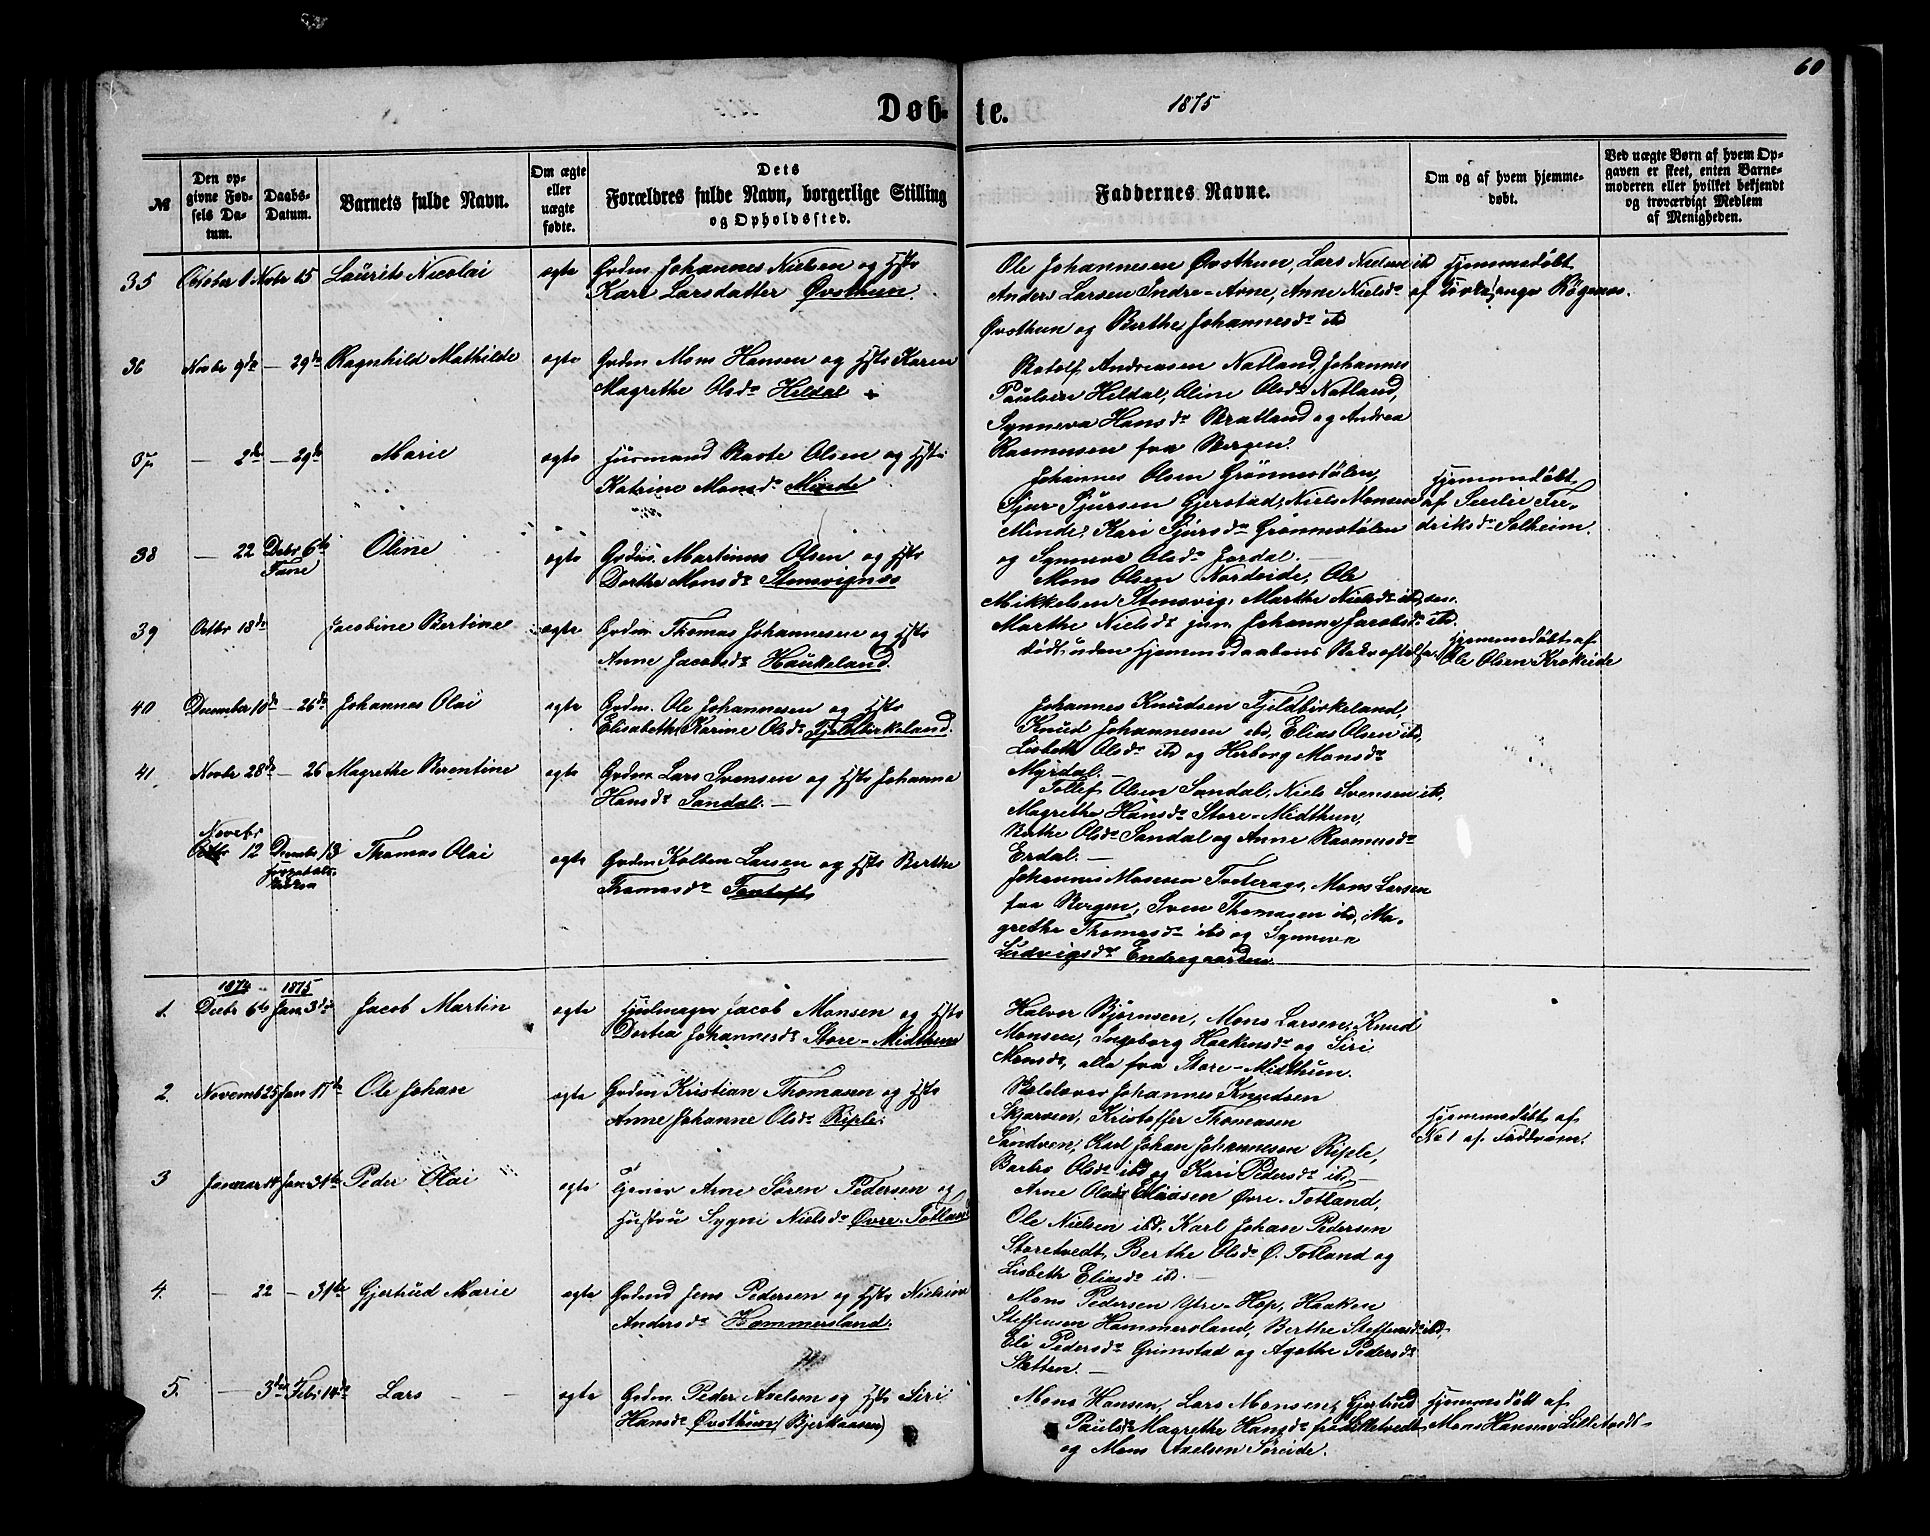 60
Døb-te.
1875
№
Den op-
givne Fød-
sels Da-
tum.
Daabs-
Datum.
Barnets fulde Navn.
Om ægte
eller
uægte
fødte.
Dets
Forældres fulde Navn, borgerlige Stilling
og Opholdssted.
Faddernes Navne.
Om og af hvem hjemme-
døbt.
Ved uægte Børn af hvem Op-
gaven er skeet, enten Barne-
moderen eller hvilket bekjendt
og troværdigt Medlem
af Menigheden.
35 October 1 Novbr 15 Laurits Nicolai ægte Grdm. Johannes Nielsen og Hst.
Kari Larsdatter Øvsthun.
Ole Johannesen Øvsthun, Lars Nielsen ibd
Anders Larsen Indre-Arne, Anne Nielsdr
Øvsthun og Berthe Johannesdr ibd
Hjemmedøbt
af
36 Novbr 9de — 29de Ragnhild Mathilde ægte Grdm Mons Hansen og Hst. Karen
Magrethe Olsdr Hildal
Botolf Andreasen Natland, Johannes
Paulsen Hildal, Oline Olsdr Natland,
Synneva Hansdr Bratland og Andrea
Rasmussen fra Bergen.
37 — 2de — 29de Marie ægte Husmand Baste Olsen og Hst.
Katrine Monsdr Minde
Johannes Olsen Grønnestølen,
Sjur Sjursen Gjerstad, Niels Monsen
Minde, Kari Sjursdr Grønnestølen
og Synneva Olsdr
Hjemmedøbt
af Cecilie Fre-
driksdr Solheim.
38 — 22 Decbr 6te Oline ægte Grdm. Martinus Olsen og Hst.
Fane
Dorthe Monsdr Stensvignes
Mons Olsen Nordvide, Ole
Mikkelsen Stensvig, Marthe Nielsdr ibd, sen.
Marthe Nielsdr jun. Johanne Jacobsdr ibd.
39 Octbr 18de Jacobine Bertine ægte Grdm. Thomas Johannesen og Hst.
Anne Jacobsdr Haukeland.
Død uden Hjemmedaabens Bekræftelse
Hjemmedøbt af
Ole Olsen Krokeide
40 December 10de — 26de Johannes Olai ægte Grdm. Ole Johannesen og Hst.
Elisabeth Karine Olsdr Fjeldbirkeland.
Johannes Knudsen Fjeldbirkeland,
Knud Johannesen ibd, Elias Olsen ibd,
Lisbeth Olsdr ibd og Herborg Monsdr
Myrdal. —
41. Novbr 28de — 26 Magrethe Berentine ægte Grdm. Lars Svensen og Hst. Johanna
Hansdr Sandal. —
Tollef Olsen Sandal, Niels Svensen ibd,
Magrethe Hansdr Store-Midthun,
Berthe Olsdr Sandal og Anne Rasmusdr
Erdal. —
Novebr
12 Decembr 13 Thomas Olai ægte Grdm Kolben Larsen og Hst. Berthe
Hospitals
Kirken
Thomasdr Fantoft
Johannes Monsen Tveteraas, Mons Larsen
fra Bergen, Sven Thomasen ibd, Ma-
grethe Thomasdr ibd og Synneva
Ludvigsdr Endregaarden.
1874 1875
1. Decbr 6te Jan. 3de Jacob Martin ægte Hjulmager Jacob Monsen og Hst.
Dortea Johannesdr Store-Midthun
Halvor Bjørnsen, Mons Larsen, Knud
Monsen, Ingeborg Haakensdr og Siri
Monsdr, alle fra Store-Midthun.
2. Novemb 25 Jan 17de Ole Johan ægte Grdm Kristian Thomasen og Hst.
Anne Johanne Olsdr Riple.
Johannes Knudsen
Skjarven, Kristoffer Thomasen
Sandven, Karl Johan Johannesen Riple,
Barbro Olsdr ibd og Kari Pedersdr ibd. —
Hjemmedøbt af
No 1 af Faddrene.
3 Januar 14 Jan 31te Peder Olai ægte Tjener Arne Søren Pedersen og
Hustru Sygni Nielsdr Øvre-Totland
Arne Olai Eliasen Øvre-Totland,
Ole Nielsen ibd, Karl Johan Pedersen
Storetvedt, Berthe Olsdr Ø. Totland og
Lisbeth Eliasdr ibd. —
4. — 22 — 31te Gjertrud Marie ægte Grdmd Jens Pedersen og Hst.
Andersdr Hammersland.
Mons Pedersen Ytre-Hop, Haaken
Steffensen Hammersland, Berthe Steffensdr ibd,
Eli Pedersdr Grimstad og Agathe Pedersdr
Sletten. —
5. — 3die Febr 14de Lars ægte Grdm. Peder Axelsen og Hst. Siri
Hansdr Øvsthun (Bjerkaasen)
Mons Hansen, Lars Monsen, Gjertrud
Paulsdr Magrethe Hansdr fra Lilletvedt
og Mons Axelsen Søreide.
Hjemmedøbt af
Mons Hansen Lilletvedt